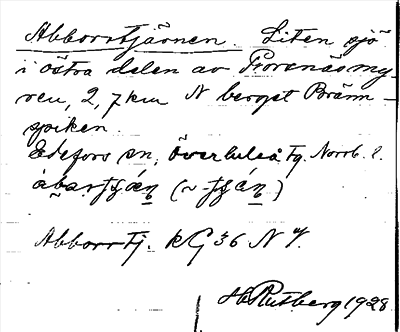 Abborrtjärnen. Liten sjö
i östra delen av Storenäsmy-
ren, 2,7 km N berget Poränn-
spiken.
Edefors sn, Överluleå tg. Norrb. l.
Abborrtj. kG 36 N 7.
H. Rutberg 1928